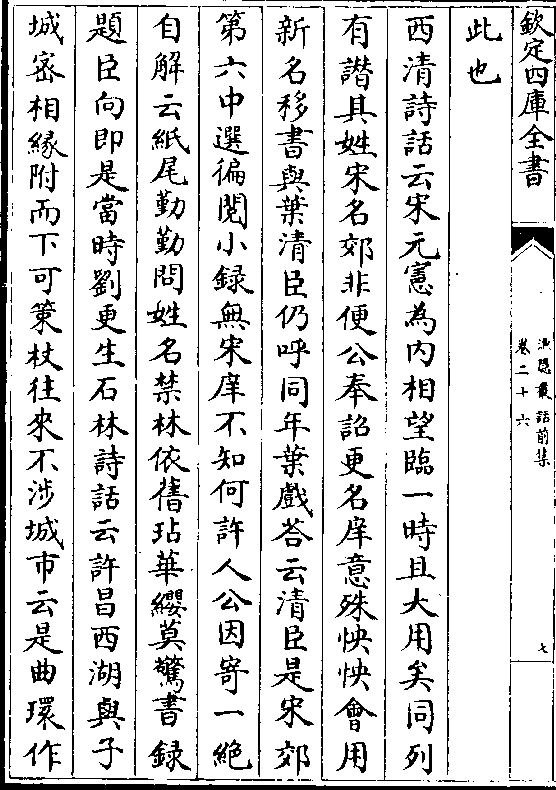 欽定四庫全書
漁隠叢話前集
卷二十六
七
此也
西清詩話云宋元憲為内相望臨一時且大用矣同列
有譖其姓宋名郊非便公奉詔更名庠意殊怏怏會用
新名移書與葉清臣仍呼同年葉戲荅云清臣是宋郊
第六中選徧閲小録無宋庠不知何許人公因寄一絶
自解云紙尾勤勤問姓名禁林依舊玷華纓莫驚書録
題臣向即是當時劉更生石林詩話云許昌西湖與子
城宻相緣附而下可策杖往來不涉城市云是曲環作